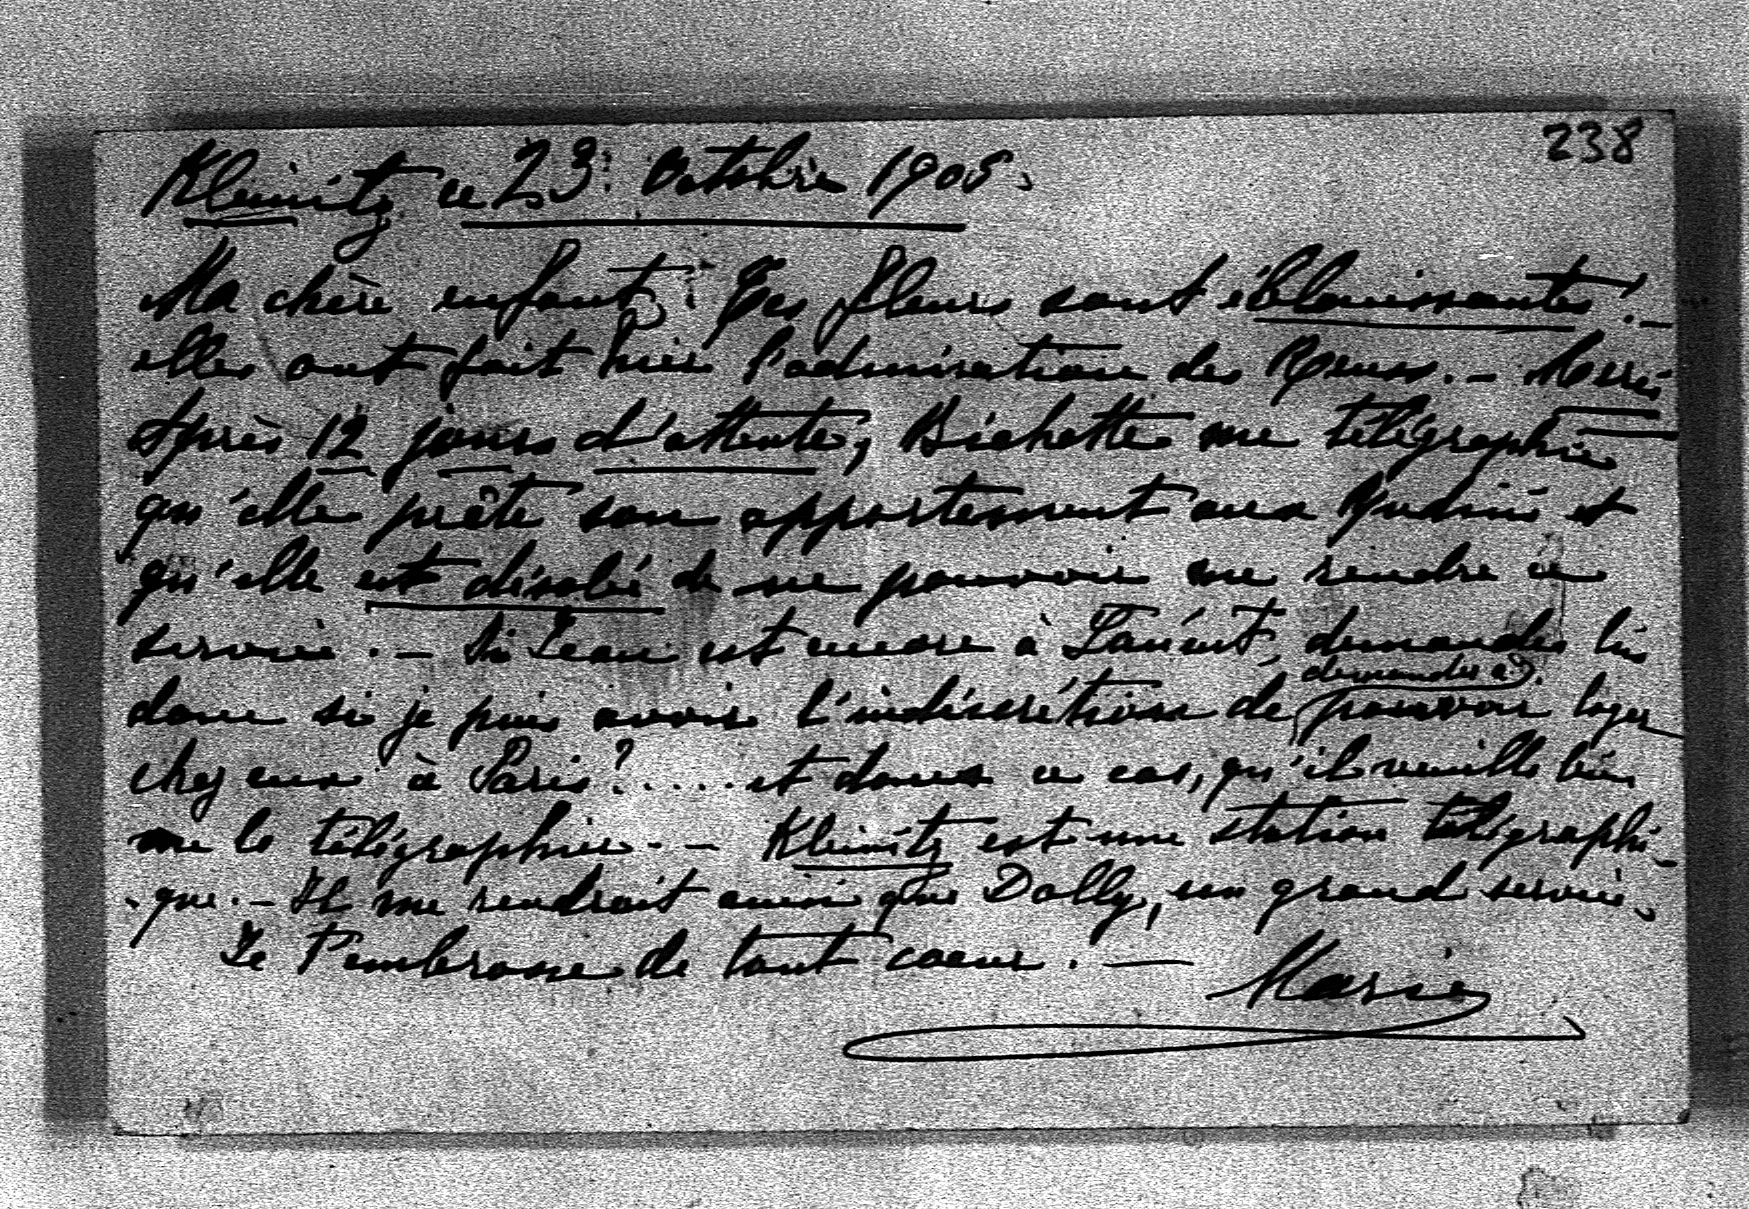 238
Kleinitz ce 23. Octobre 1905.
Ma chère enfant! Tes fleurs sont éblouissantes!_
elles ont fait hier l'admiration des Reuss. _ Merci
Après 12 jours d'attente, Bichette me télégraphie
qu'elle prête son appartement aux et
qu'elle est désolée de ne pouvoir me rendre ce
service. _ Si Jean est encore à demandes lui
donc si je puis avoir l'indiscrétion de pouvoir loger
demander à
chez eux à Paris?..... et dans ce cas, qu'il veuille bien
me le télégraphier. _ Kleinitz est une station télégraphi-
-que. _ Il me rendrait ainsi que Dolly, un grand service.
Je t'embrasse de tout coeur. _ Marie